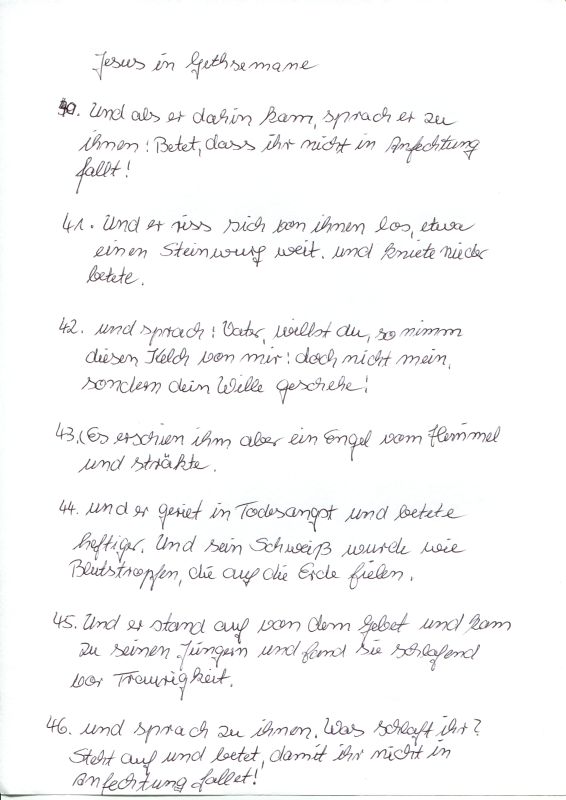 Jesus in Gethsemane
40. Und als er dahin kam, sprach er zu
ihnen: Betet, dass ihr nicht in Anfechtung
fallt!
41. Und er riss sich von ihnen los, etwa
einen Steinwurf weit. und kniete nieder
betete.
42. und sprach: Vater, willst du, so nimm
diesen Kelch von mir: doch nicht mein,
sondern dein Wille geschehe!
43. (Es erschien ihm aber ein Engel vom Himmel
und sträkte.
44. und er geriet in Todesangst und betete
heftiger. Und sein Schweiß wurde wie
Blutstropfen, die auf die Erde fielen.
45. Und er stand auf von dem Gebet und kam
zu seinen Jüngern und fand sie schlafend
vor Traurigkeit.
46. und sprach zu ihnen. Was schlaft ihr?
Steht auf und betet, damit ihr nicht in
Anfechtung fallet!